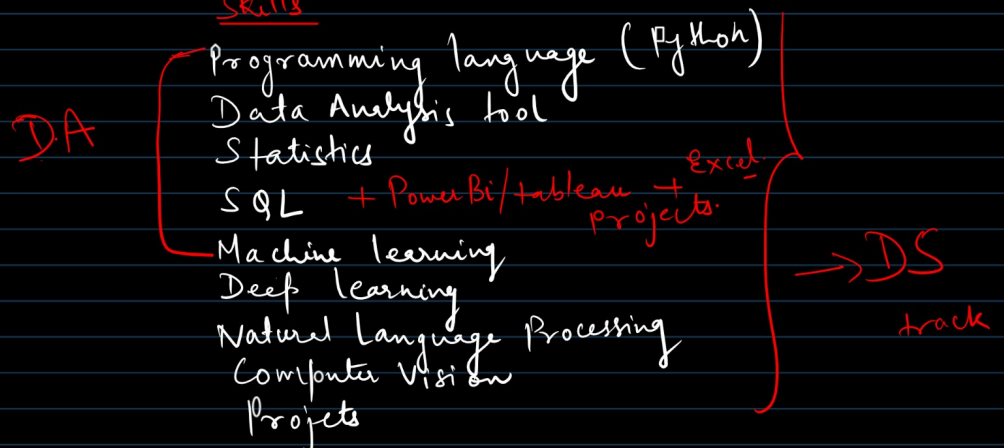 Skills
Programming language (Python)
Data Analysis tool
D.A
Statistics
SQL + PowerBi/tableau + Excel.
projects.
Machine learning
→ DS
Deep learning
track
Natural Language Processing
Computer Vision
Projets